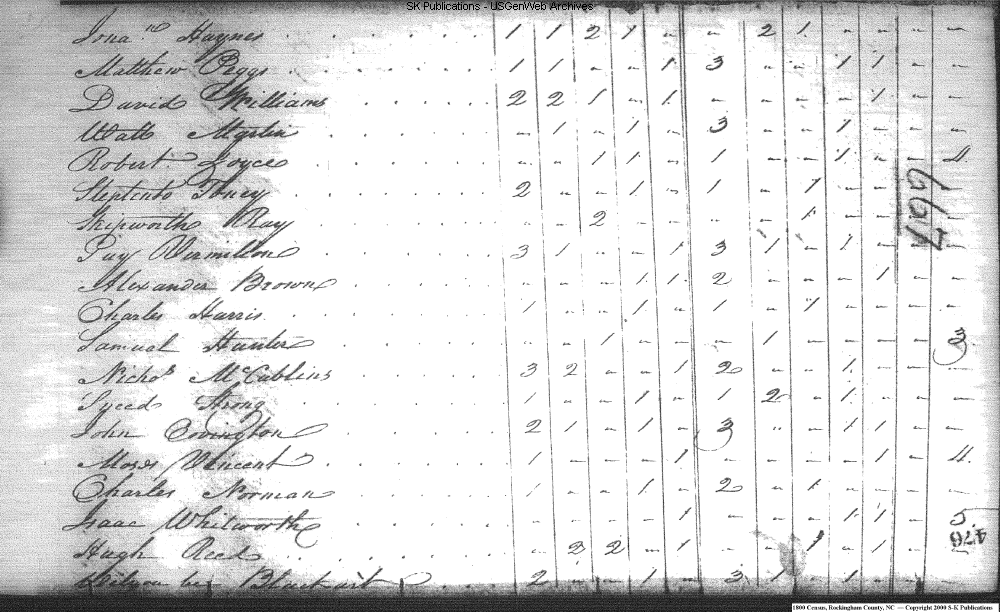 SK Publications - USGenWeb Archives
Jona.n Haynes 1 1 2 1 - - 2 1 - - - -
Matthew Peggs 1 1 - - 1 3 - - 1 1 - -
David Williams 2 2 1 - 1 - - - - 1 - -
Watts - 1 - 1 - 3 - - 1 - - -
Robert Joyce - - 1 1 - 1 - - 1 - - 4
Toney 2 - - 1 - 1 - 1 - - - -
Skipworth Ray - - 2 - - - - 1 - - - -
Vermillon 3 1 - - 1 3 1 - 1 - - -
Alexander Brown - - - 1 1 2 - - - 1 - -
Charles Harris 1 - - 1 - 1 - 1 - - - -
Samuel Hunter - - 1 - - - 1 - - - - 3
Nichos McCubbins 3 2 - - 1 2 - - 1 - - -
Strong 1 - - 1 - 1 2 - 1 - - -
John Covington 2 1 - 1 - 3 - - 1 1 - -
Moses Vincent 1 - - - 1 - - - - 1 - 4
Charles Norman 1 - - 1 - 2 - 1 - - - -
Isaac Whitworth - - - - 1 - - - 1 1 - 5
Hugh Reed - 3 2 - 1 - - 1 - 1 - -
2 - - 1 - 3 1 - 1 - - -
476
1800 Census, Rockingham County, NC — Copyright 2000 S-K Publications